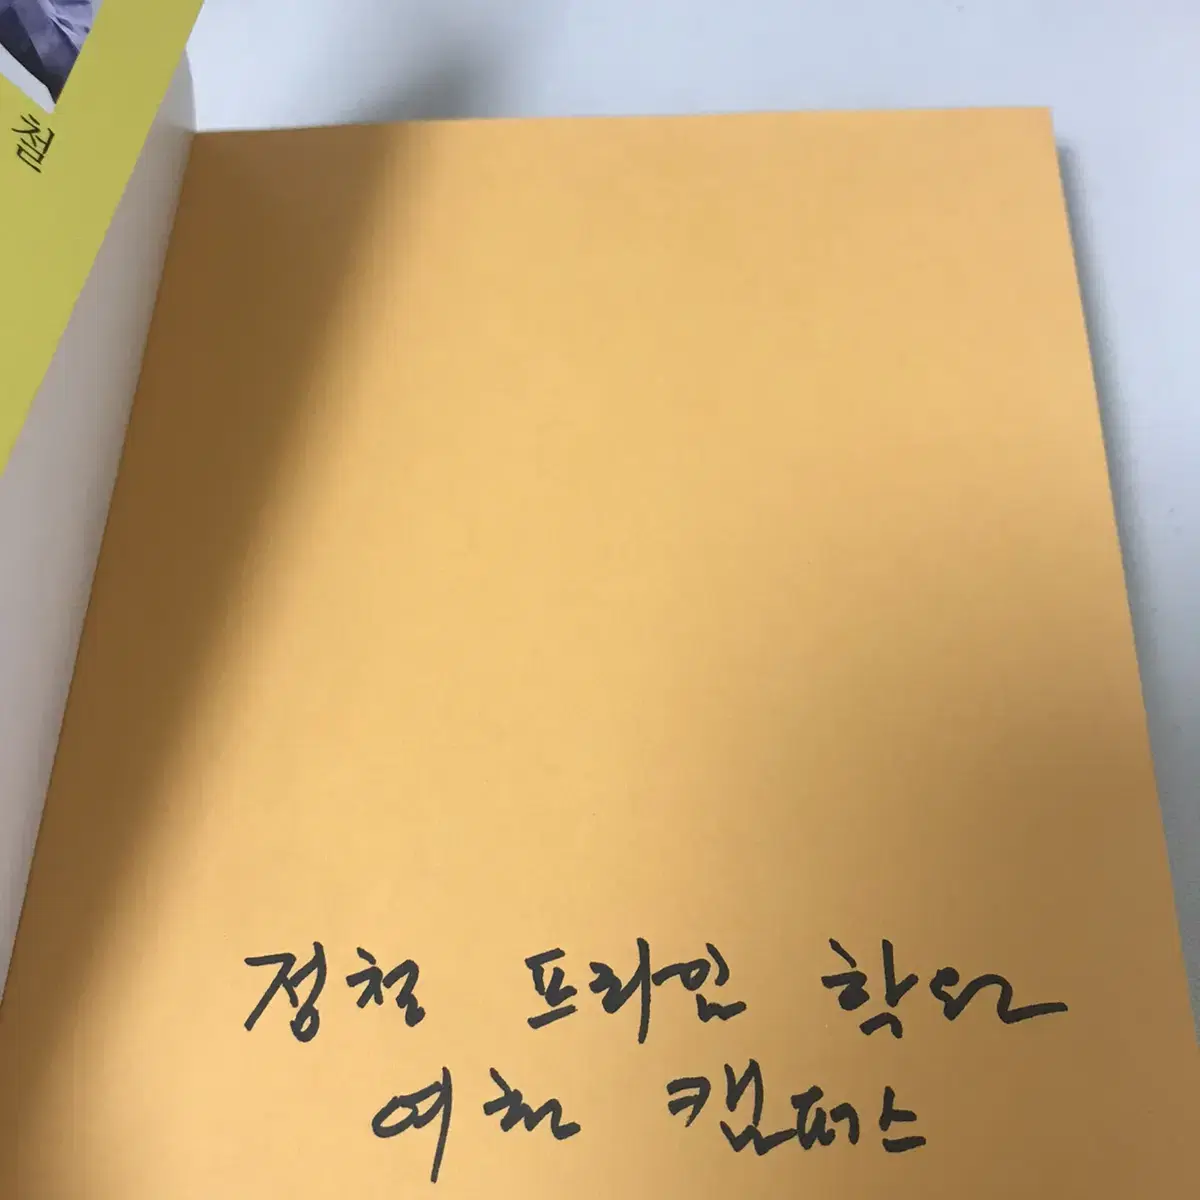 정철 프라임 학원
여천 캠퍼스